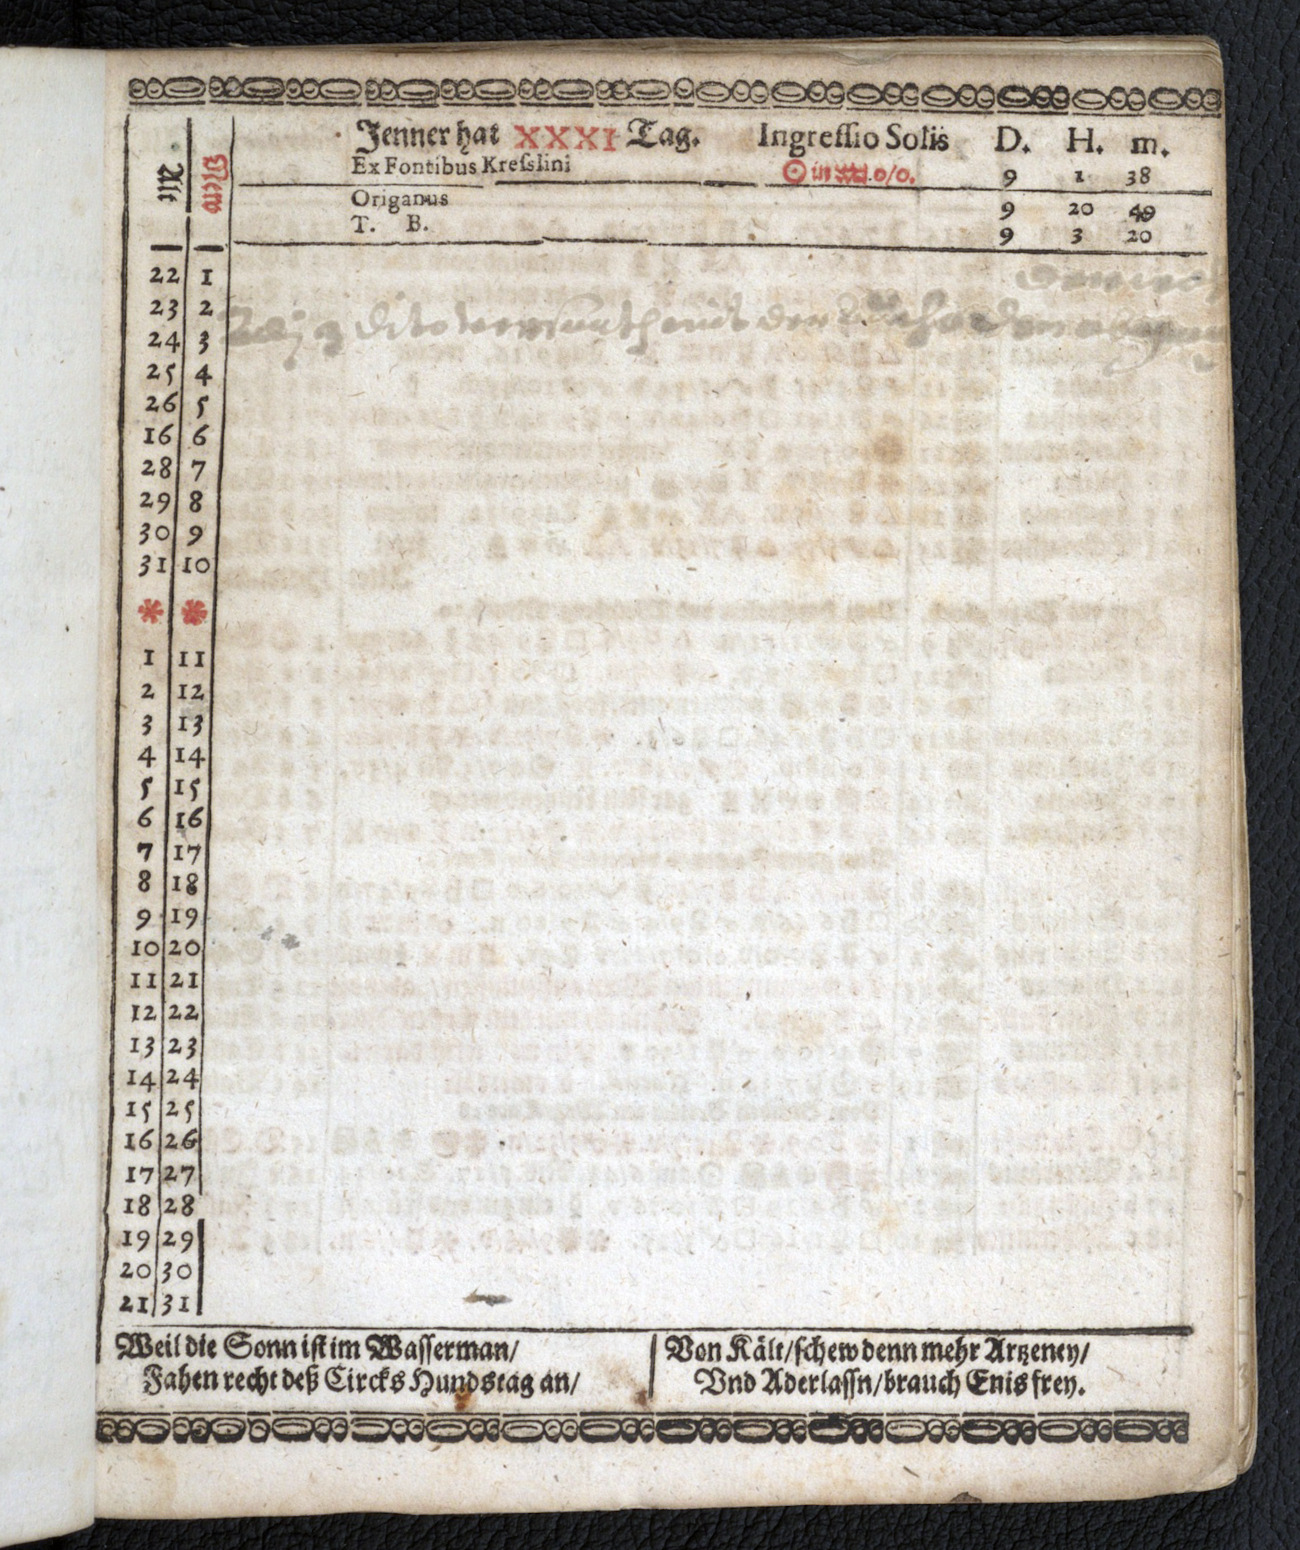 Alt
New
Jenner hat XXXI Tag. Ingressio Solis D. H. m.
Ex Fontibus Kresslini ☉ in ♒ 0/0. 9 1 38
Origanus 9 20 49
T. B. 9 3 20
22 1
23 2
24 3
25 4
26 5
16 6
28 7
29 8
30 9
31 10
* *
1 11
2 12
3 13
4 14
5 15
6 16
7 17
8 18
9 19
10 20
11 21
12 22
13 23
14 24
15 25
16 26
17 27
18 28
19 29
20 30
21 31
Weil die Sonn ist im Wasserman/
Fahen recht deß Circks Hundstag an/
Von Kält/schew denn mehr Artzeney/
Vnd Aderlassn/brauch Enis frey.